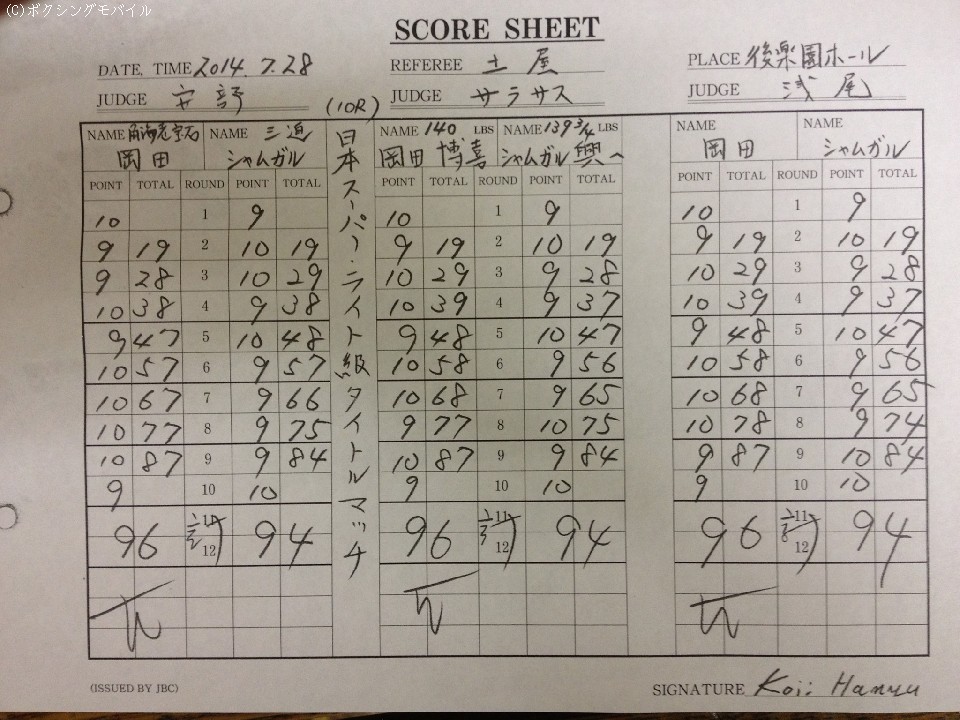 (C)ボクシングモバイル
SCORE SHEET
DATE, TIME 2014.7.28 REFEREE 土屋 PLACE 後楽園ホール
JUDGE 安部 (10R) JUDGE サラサス JUDGE 浅尾
日本スーパー・ライト級タイトルマッチ
NAME 角海老宝石 NAME 三迫 NAME 140 LBS NAME 139 3/4 LBS NAME NAME
岡田 シャムガル 岡田 博喜 シャムガル 興一 岡田 シャムガル
POINT TOTAL ROUND POINT TOTAL POINT TOTAL ROUND POINT TOTAL POINT TOTAL ROUND POINT TOTAL
10 1 9 10 1 9 10 1 9
9 19 2 10 19 9 19 2 10 19 9 19 2 10 19
9 28 3 10 29 10 29 3 9 28 10 29 3 9 28
10 38 4 9 38 10 39 4 9 37 10 39 4 9 37
9 47 5 10 48 9 48 5 10 47 9 48 5 10 47
10 57 6 9 57 10 58 6 9 56 10 58 6 9 56
10 67 7 9 66 10 68 7 9 65 10 68 7 9 65
10 77 8 9 75 9 77 8 10 75 10 78 8 9 74
10 87 9 9 84 10 87 9 9 84 9 87 9 10 84
9 10 10 9 10 10 9 10 10
96 計 11 12 94 96 計 11 12 94 96 計 11 12 94
(ISSUED BY JBC) SIGNATURE Koji Hanyu